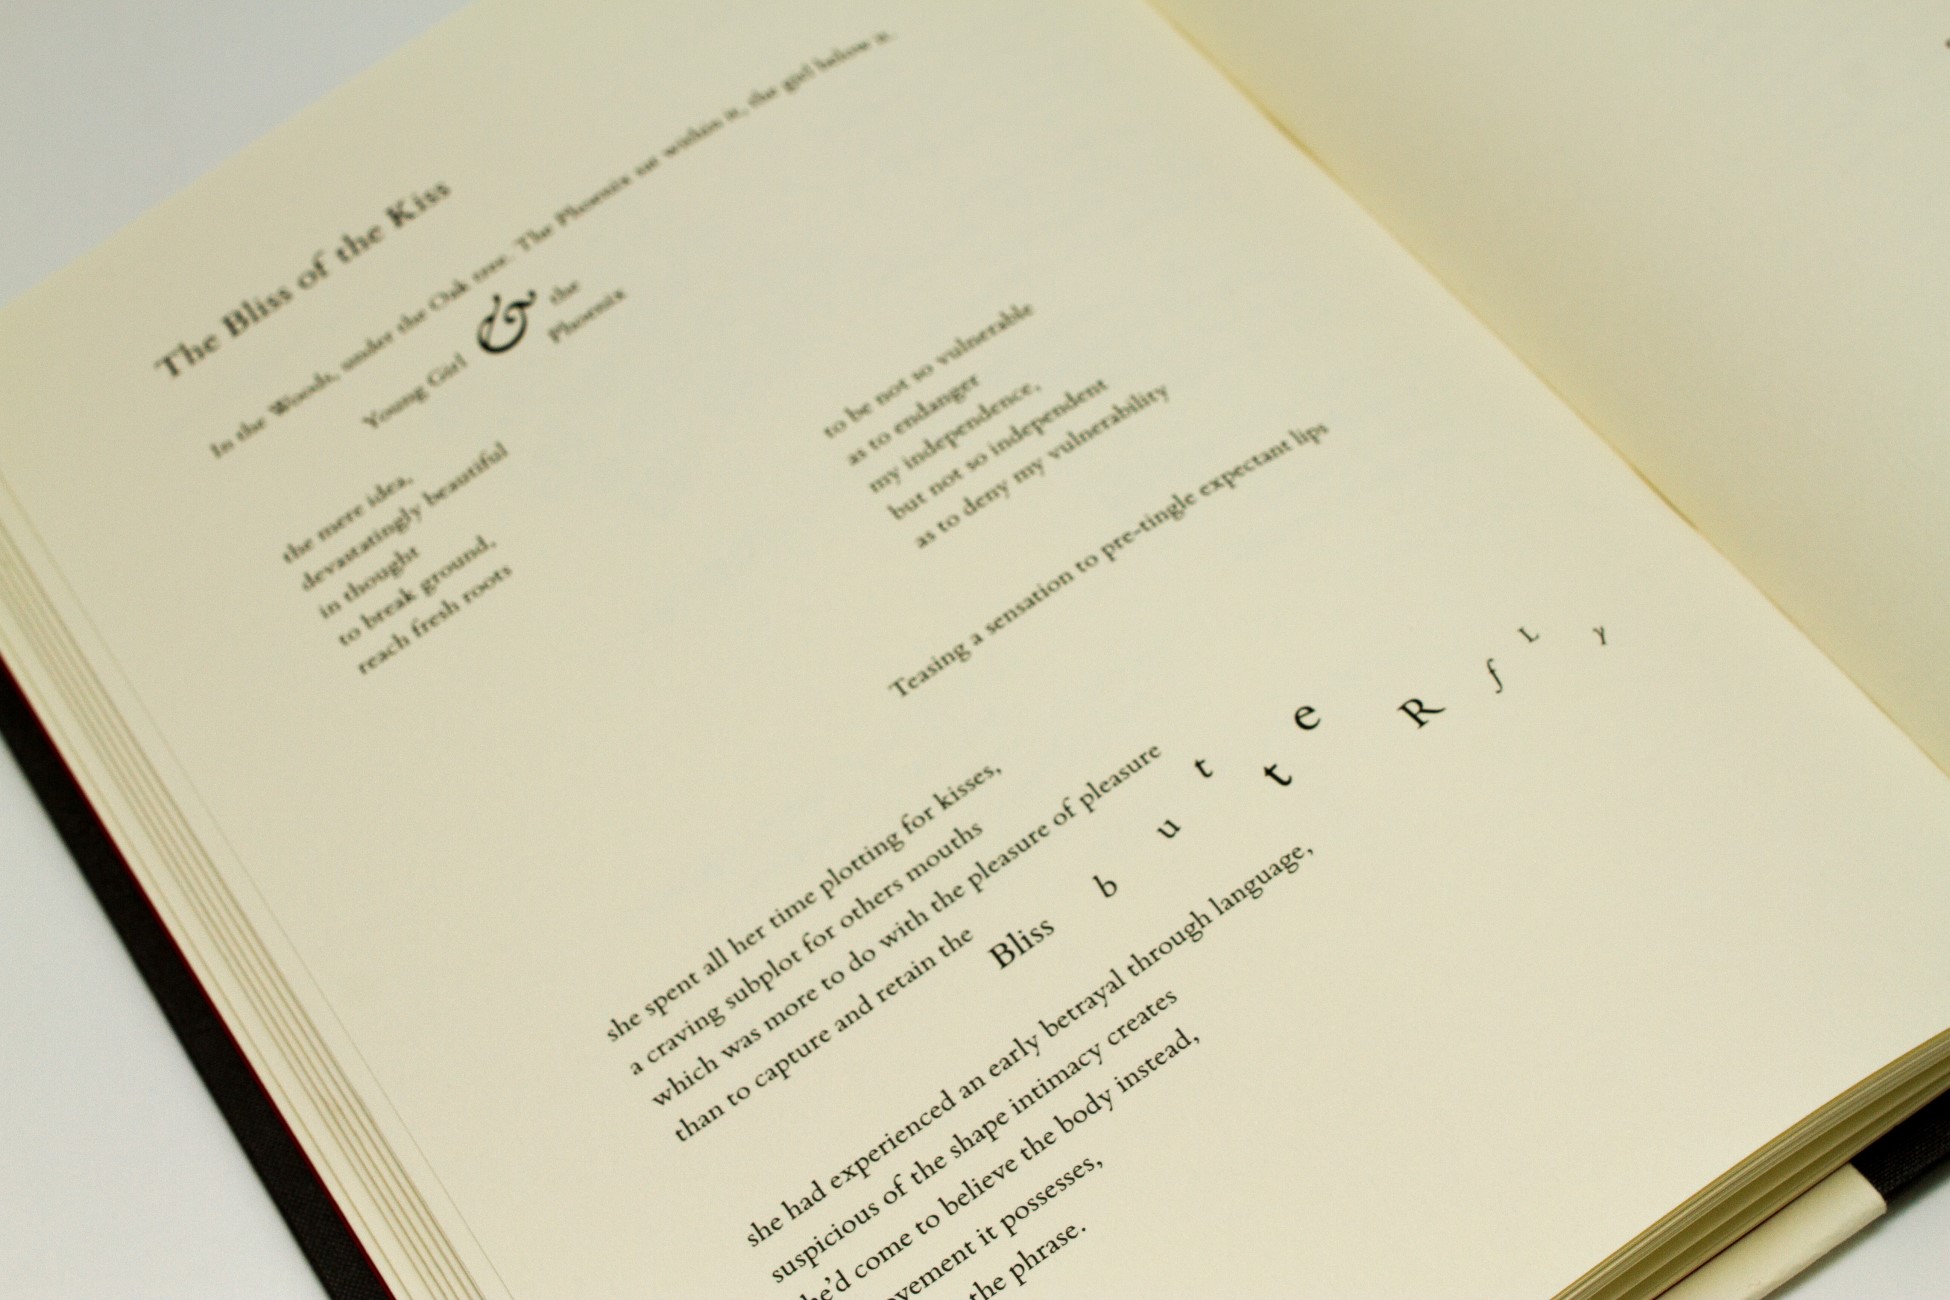 The Bliss of the Kiss
In the Woods, under the Oak tree. The Phoenix sat within it, the girl below it.
Young Girl & the Phoenix
the mere idea,
devastatingly beautiful
in thought
to break ground,
reach fresh roots
to be not so vulnerable
as to endanger
my independence,
but not so independent
as to deny my vulnerability
Teasing a sensation to pre-tingle expectant lips
she spent all her time plotting for kisses,
a craving subplot for others mouths
which was more to do with the pleasure of pleasure
than to capture and retain the Bliss b u t t e R f L y
she had experienced an early betrayal through language,
suspicious of the shape intimacy creates
he'd come to believe the body instead,
ovement it possesses,
the phrase.